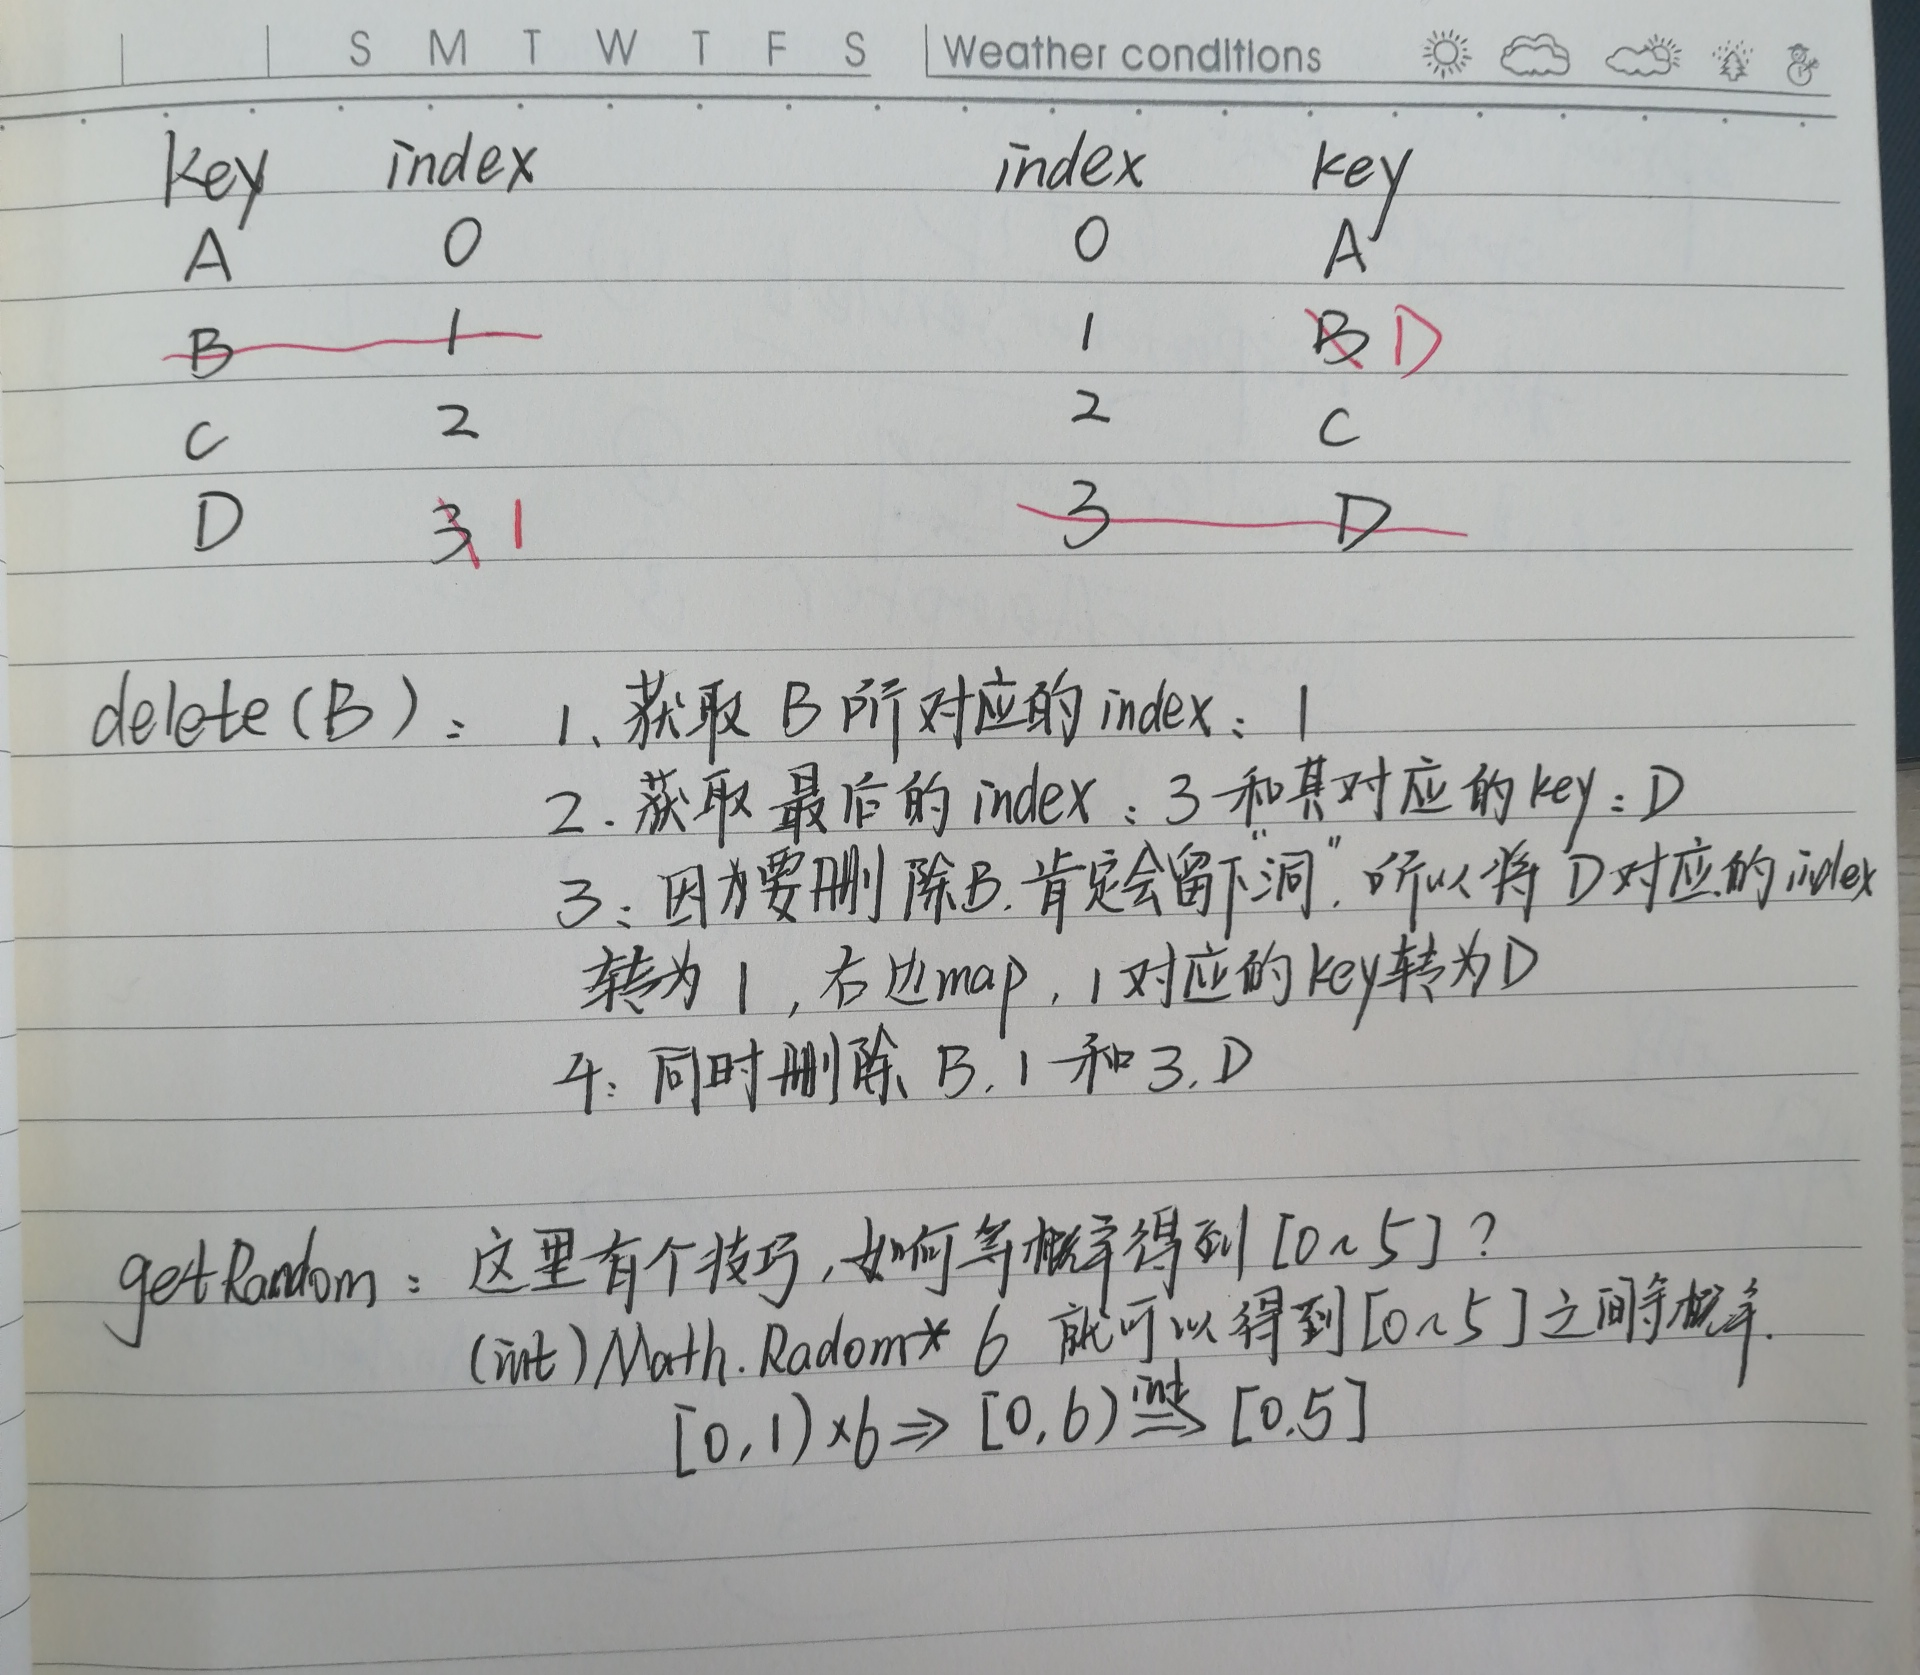 S M T W T F S Weather conditions
key index index key
A 0 0 A
B 1 1 B D
C 2 2 C
D 3 1 3 D
delete(B): 1、获取 B 所对应的 index: 1
2. 获取最后的 index: 3 和其对应的 key: D
3: 因为要删除B.肯定会留下“洞”,所以将 D对应的 index
转为 1, 右边map, 1对应的key转为D
4: 同时删除 B.1 和 3.D
getRandom: 这里有个技巧,如何等概率得到[0~5]?
(int)Math.Radom* 6 就可以得到[0~5]之间等概率.
[0,1)×6⇒ [0,6) int⇒ [0.5]